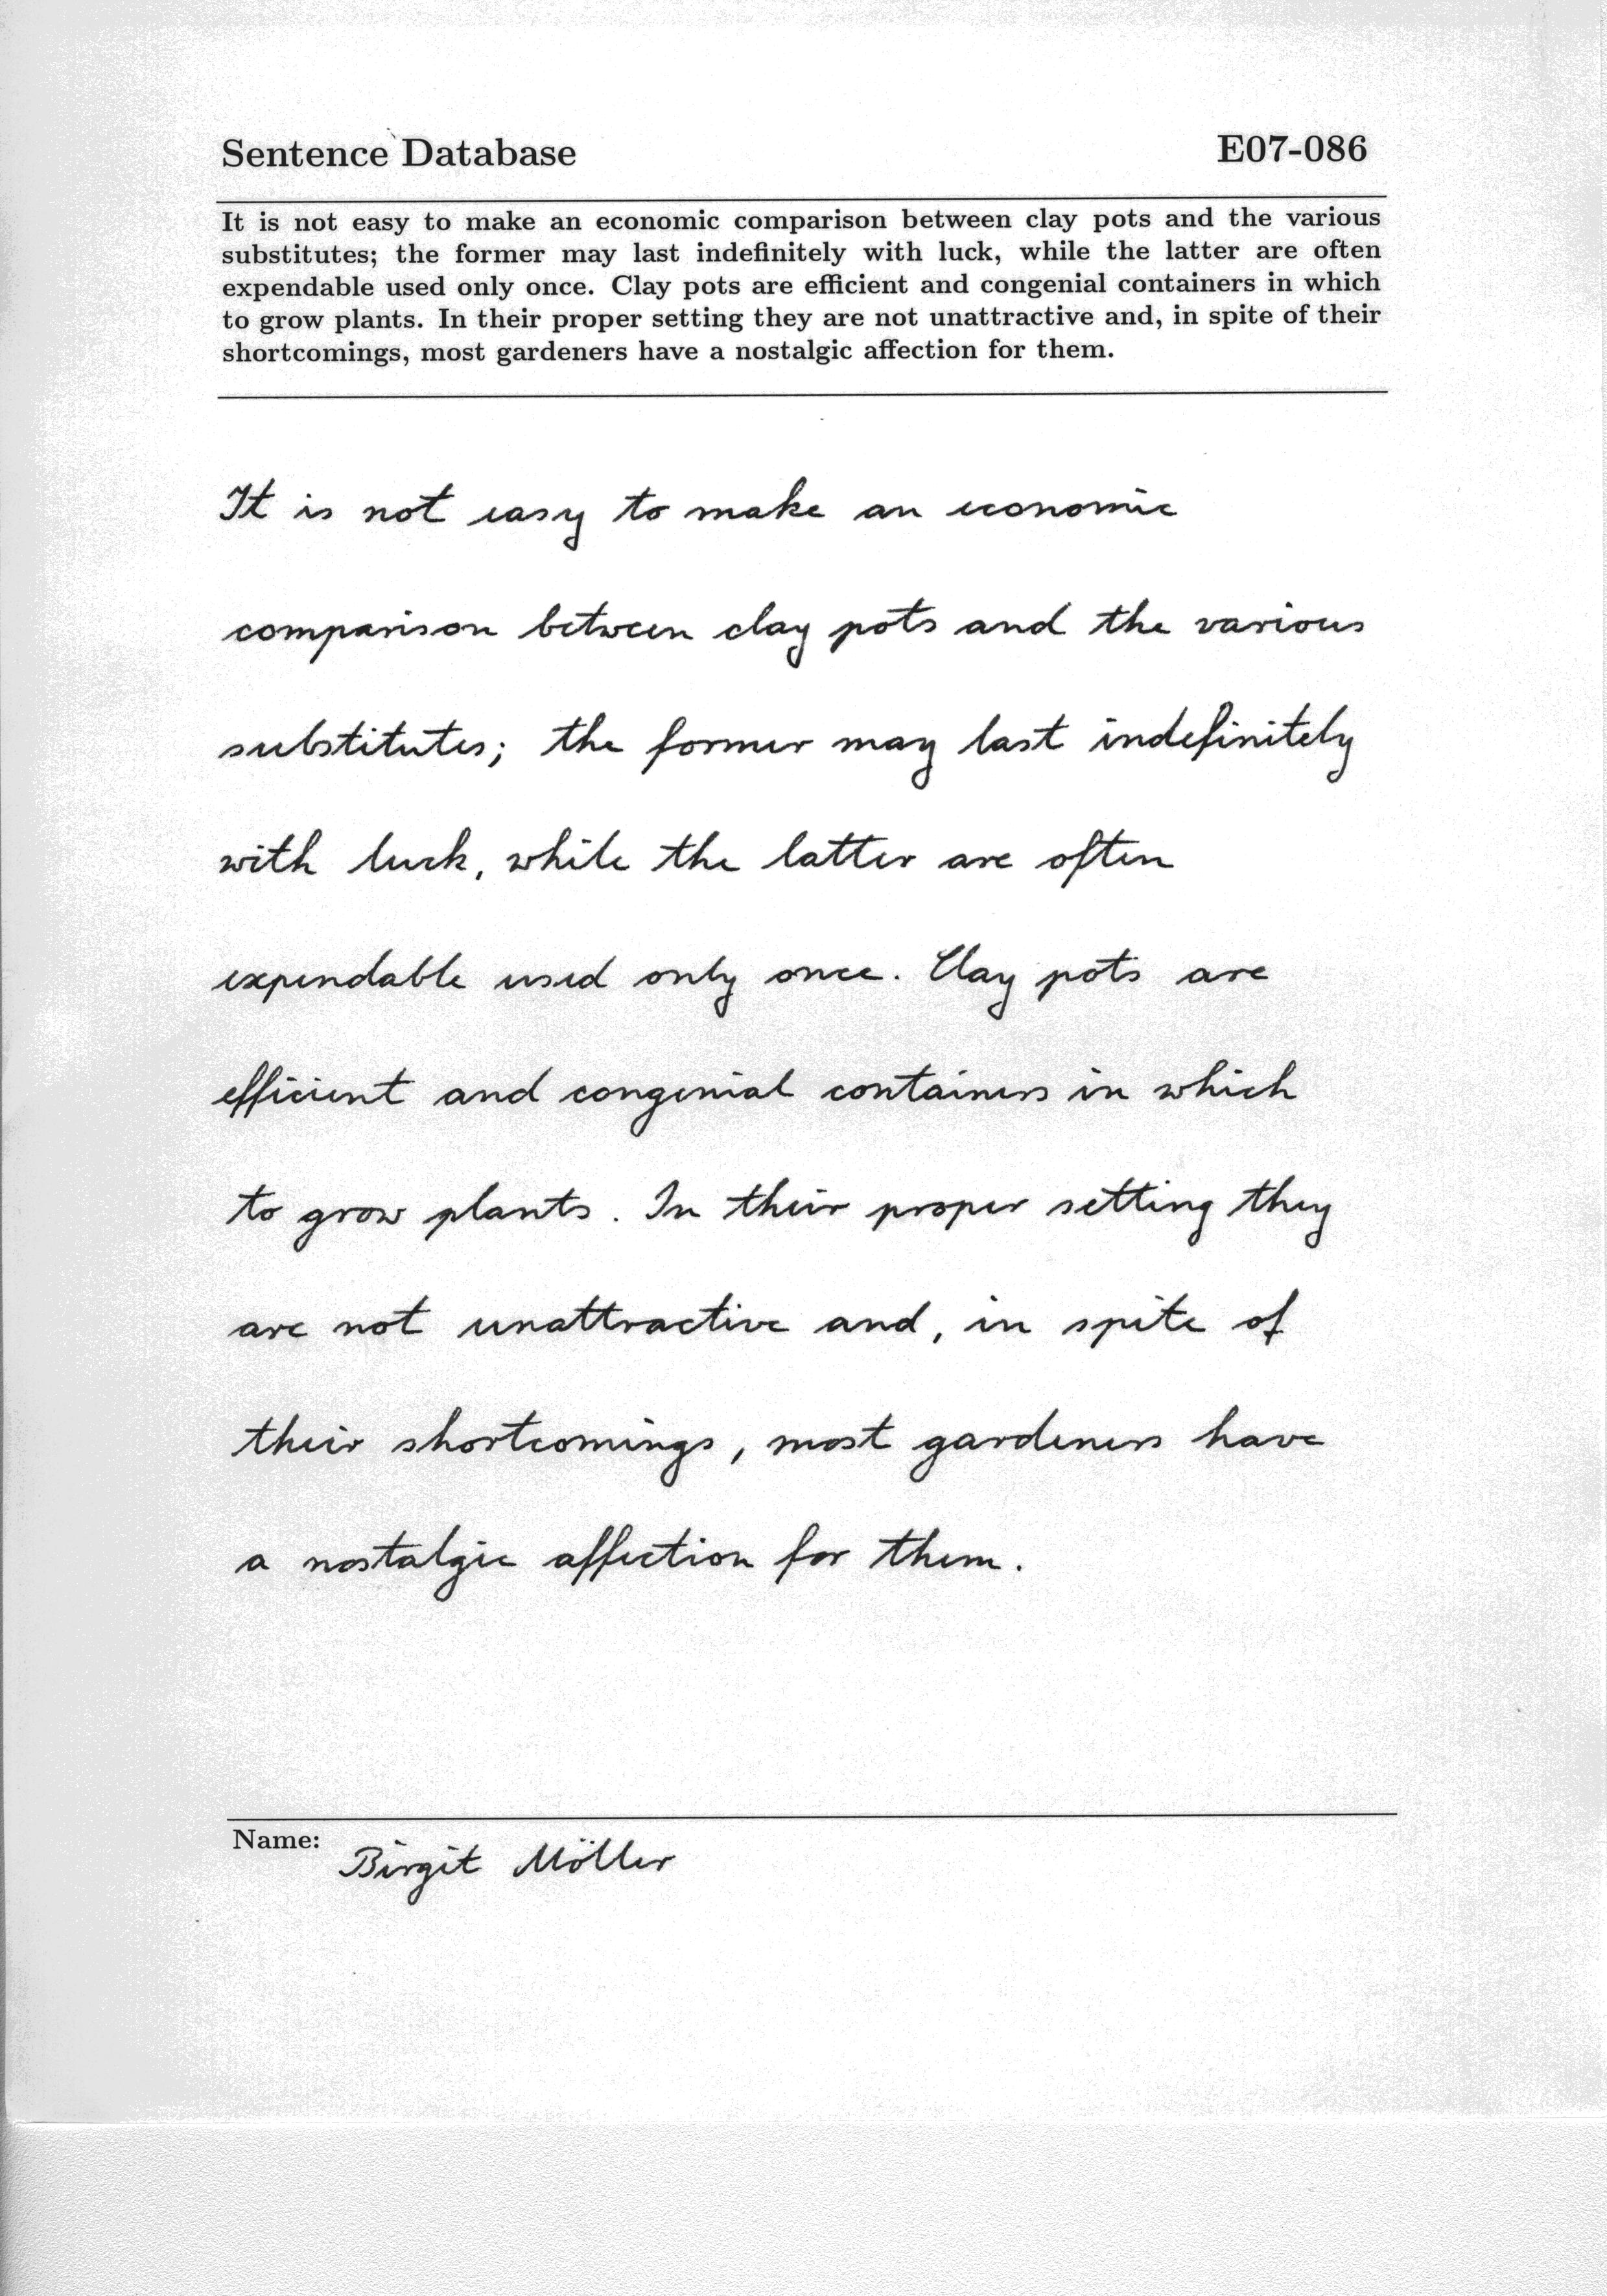 Sentence Database
E07-086
It is not easy to make an economic comparison between clay pots and the various
substitutes; the former may last indefinitely with luck, while the latter are often
expendable used only once. Clay pots are efficient and congenial containers in which
to grow plants. In their proper setting they are not unattractive and, in spite of their
shortcomings, most gardeners have a nostalgic affection for them.
It is not easy to make an economic
comparison between clay pots and the various
substitutes; the former may last indefinitely
with luck, while the latter are often
expendable used only once. Clay pots are
efficient and congenial containers in which
to grow plants. In their proper setting they
are not unattractive and, in spite of
their shortcomings, most gardeners have
a nostalgic affection for them.
Name:
Birgit Möller